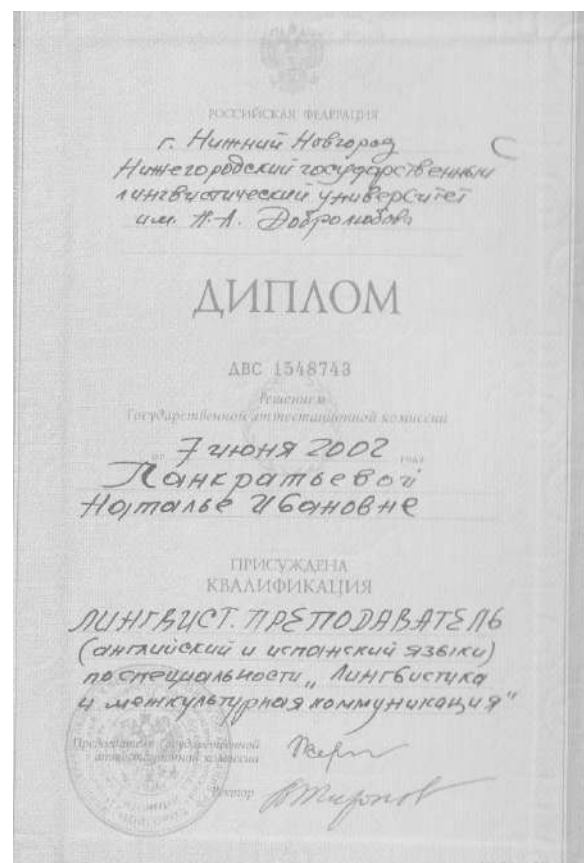 РОССИЙСКАЯ ФЕДЕРАЦИЯ
г. Нижний Новгород
Нижегородский государственный
лингвистический университет
им. Н.А. Добролюбова
ДИПЛОМ
ДВС 1548743
Решением
Государственной аттестационной комиссии
от 7 июня 2002 года
Панкратьевой
Наталье Ивановне
ПРИСУЖДЕНА
КВАЛИФИКАЦИЯ
ЛИНГВИСТ. ПРЕПОДАВАТЕЛЬ
(английский и испанский языки)
по специальности „Лингвистика
и межкультурная коммуникация"
Председатель Государственной
аттестационной комиссии
Ректор